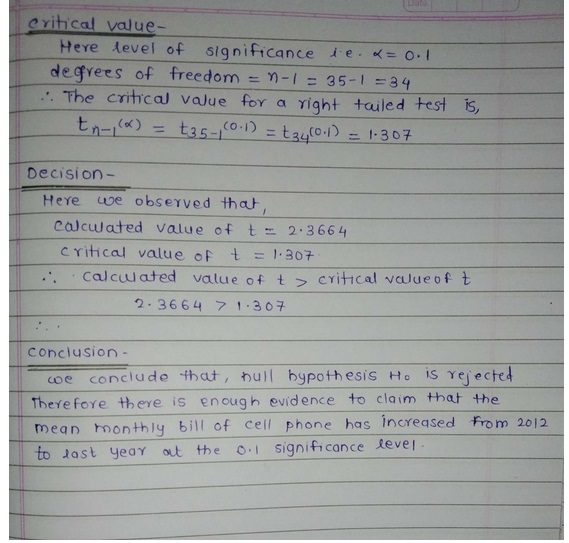 critical value-
Here level of significance i.e. α = 0.1
degrees of freedom = n-1 = 35-1 = 34
∴ The critical value for a right tailed test is,
t_{n-1}(α) = t_{35-1}(0.1) = t_{34}(0.1) = 1.307
Decision-
Here we observed that,
calculated value of t = 2.3664
critical value of t = 1.307
∴ calculated value of t > critical value of t
2.3664 > 1.307
∴.
conclusion-
we conclude that, null hypothesis H₀ is rejected
Therefore there is enough evidence to claim that the
mean monthly bill of cell phone has increased from 2012
to last year at the 0.1 significance level.